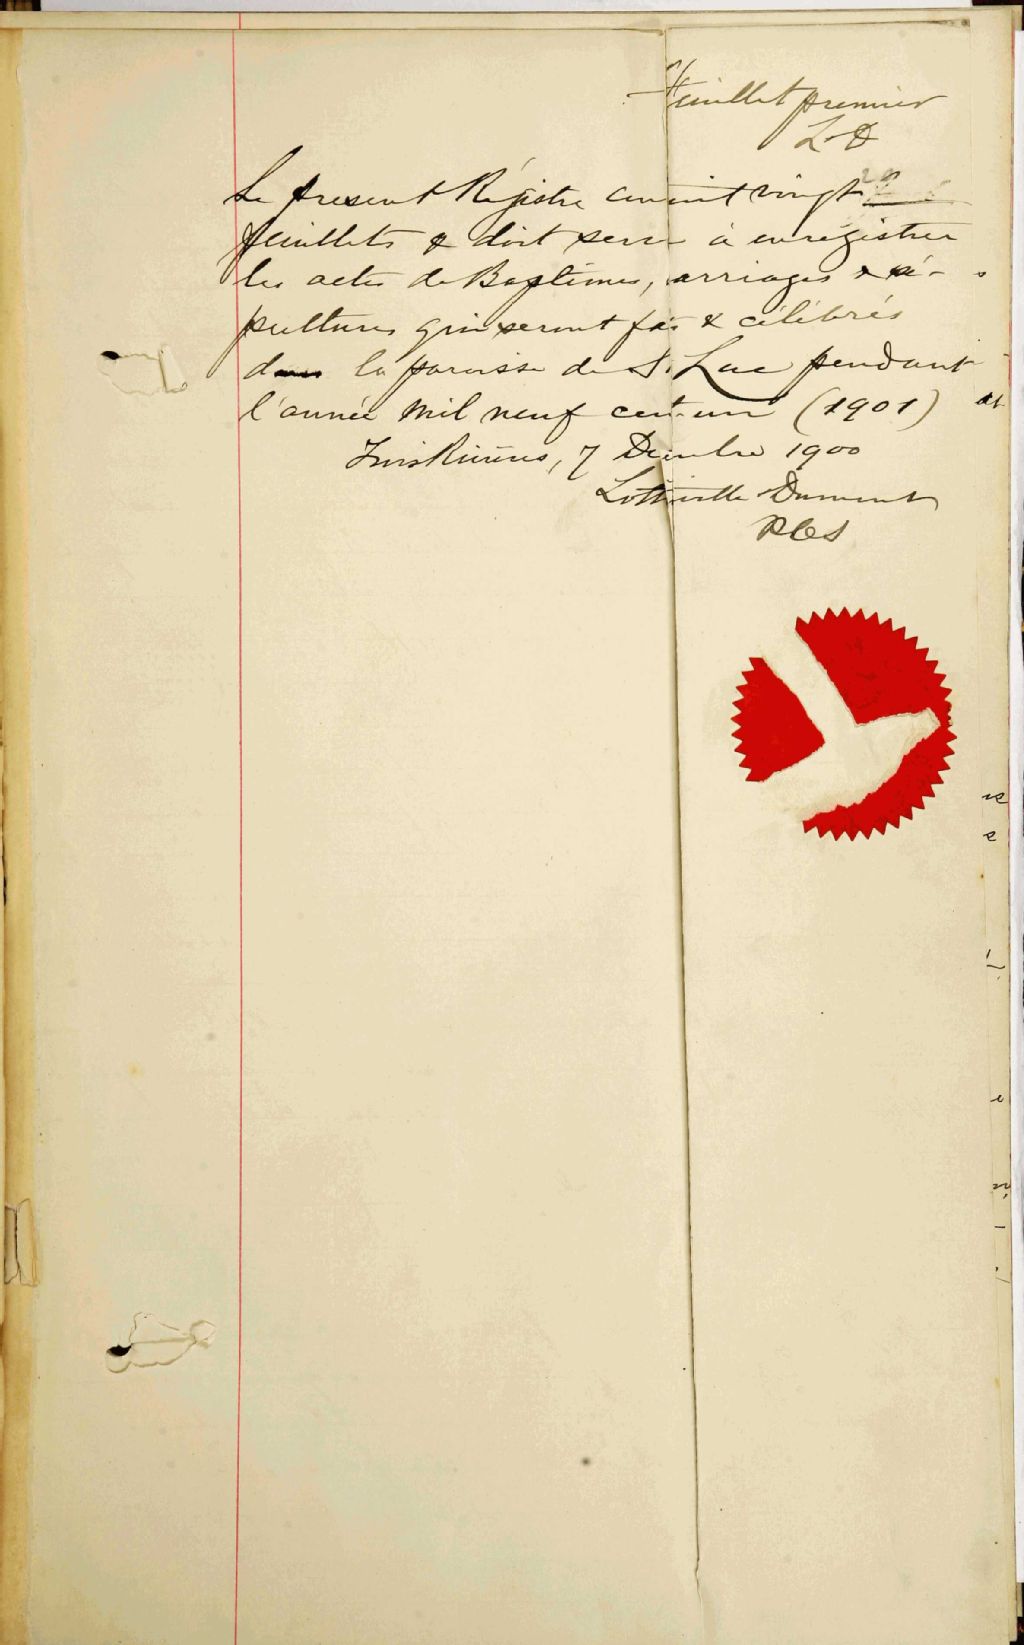 Feuillet premier
L D
Le present Régistre contient vingt 20
feuillets & doit servir à enregistrer
les actes de Baptêmes, arriages & sé-
pultures qui seront fais & célébrés
dans la paroisse de S. Luc pendant
l'année mil neuf cent-un (1901)
Trois Rivières, 7 Décembre 1900
Lottinville Dumont
PCS